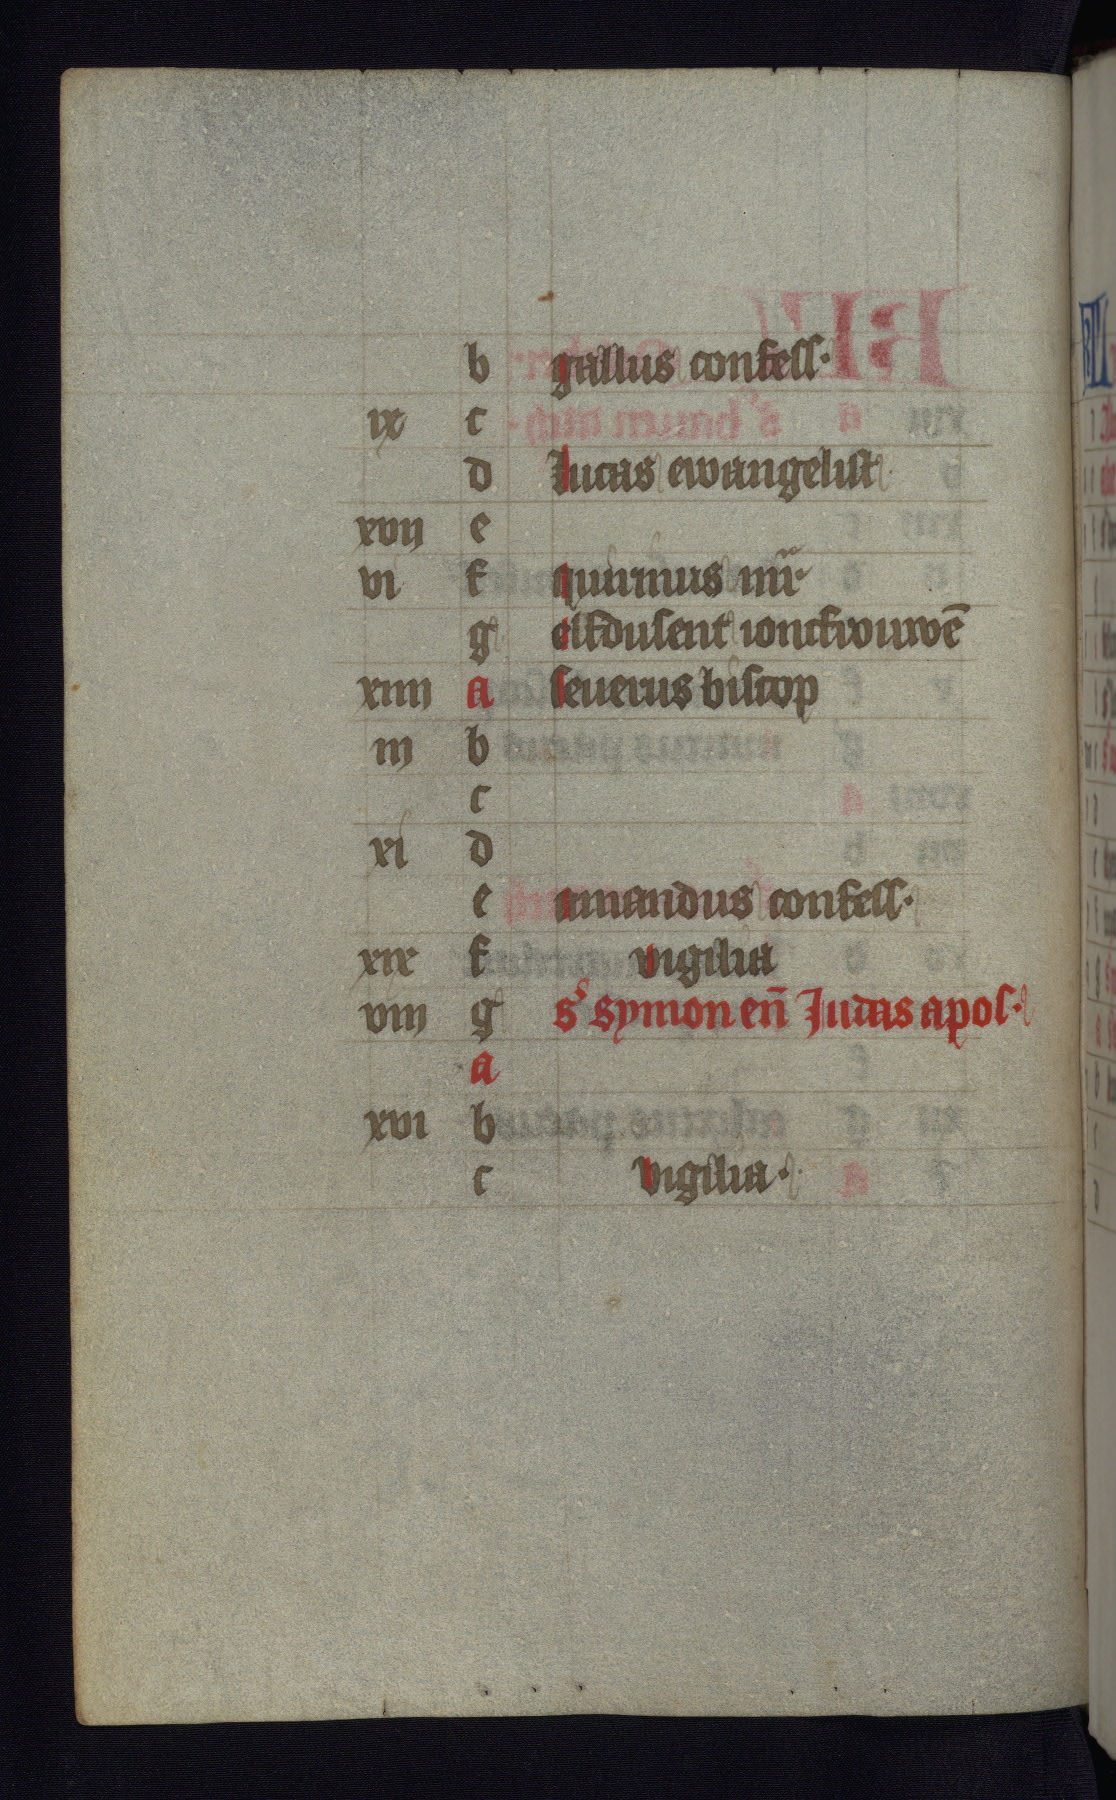 b gallus confess·
ix c
d lucas ewangelist
xvij e
vi f quirinus mr̄·
g elfdusent ioncfrouwē
xiiij a seuerus biscop
iij b
c
xi d
e amandus confess·
xix f vigilia
viij g s' symon en̄ Judas apos·
a
xvi b
c vigilia·